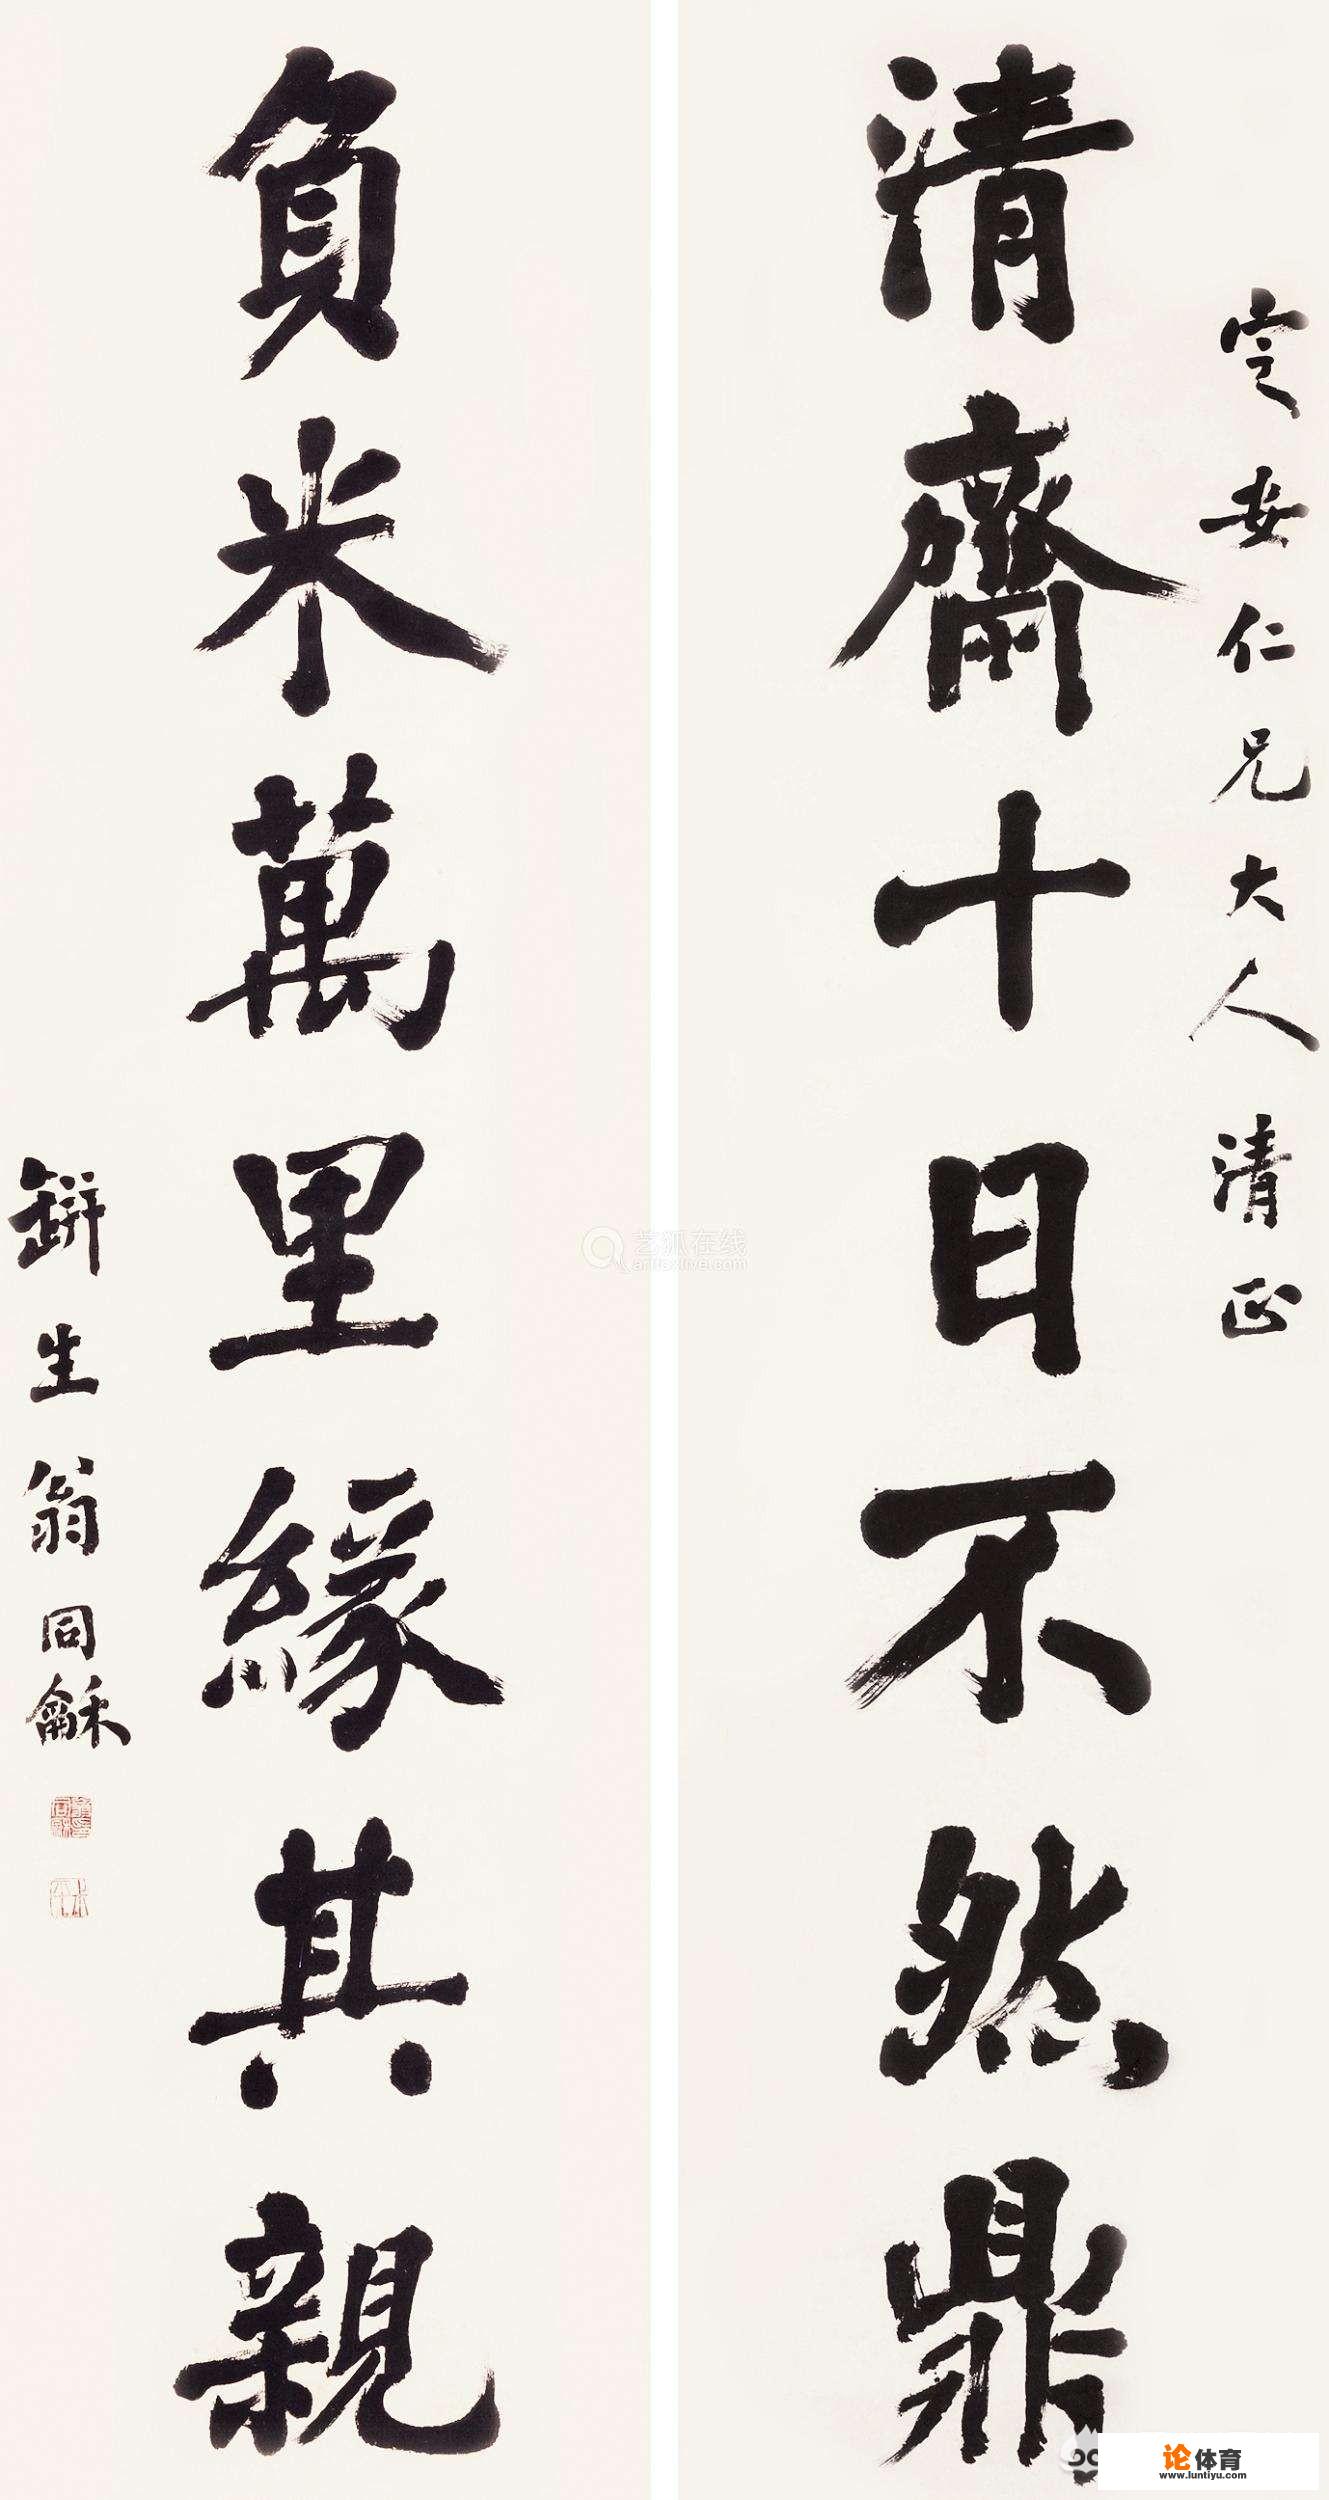 定安仁兄大人清正
清齋十日不然鼎
負米萬里緣其親
缾生翁同龢
艺狐在线
artfoxlive.com
论体育
www.luntiyu.com